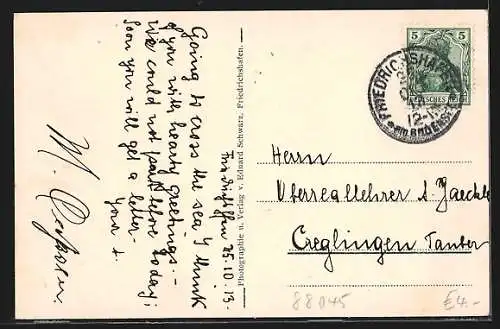 Going to cross the sea I think
of you with hearty greetings. -
We could not part before today;
Soon you will get a letter
Your
Friedrichshafen 25.10.13.
Photographie u. Verlag v. Eduard Schwarz, Friedrichshafen.
5 5
DEUTSCHES REICH
FRIEDRICHSHAFEN
12-1N
* am BODENSEE
Herrn
Oberreallehrer A. Jaeckle
Creglingen Tauber
88045
€4.-